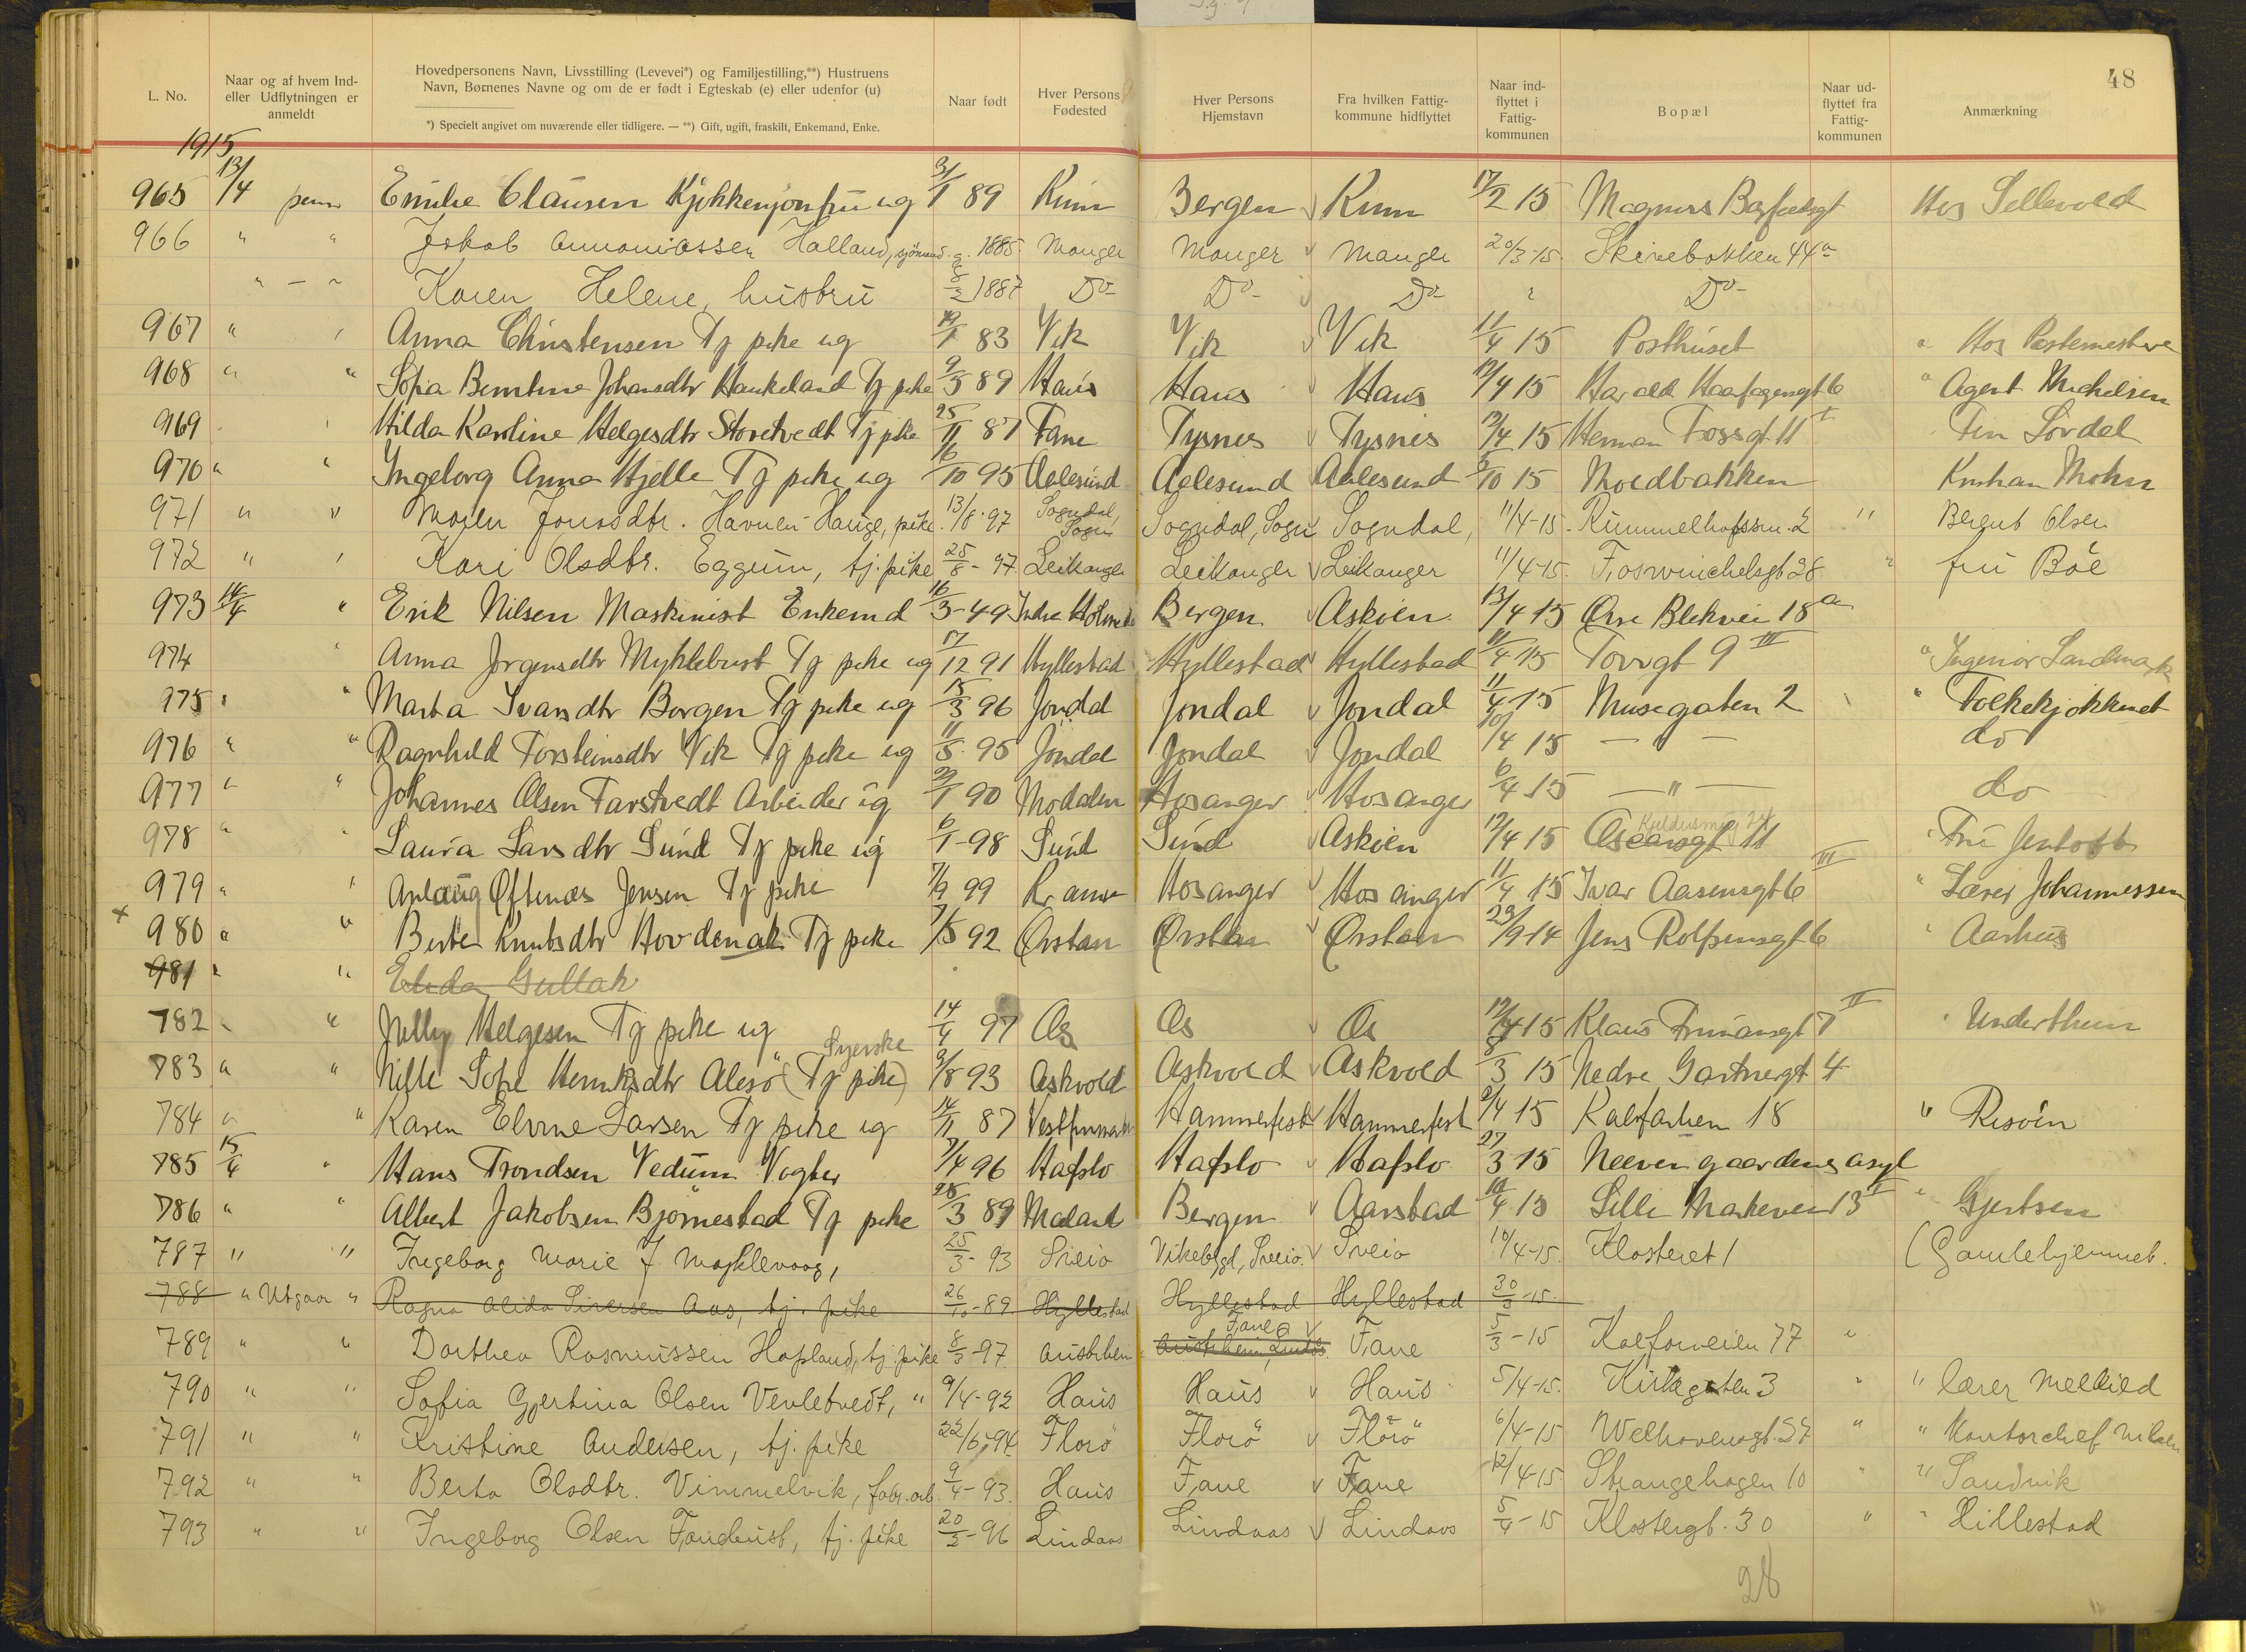 48
L. No.
Naar og af hvem Ind- eller Udflytningen er anmeldt
Hovedpersonens Navn, Livsstilling (Levevei*) og Familjestilling,**) Hustruens Navn, Børnenes Navne og om de er født i Egteskab (e) eller udenfor (u)
*) Specielt angivet om nuværende eller tidligere. — **) Gift, ugift, fraskilt, Enkemand, Enke.
Naar født
Hver Persons Fødested
Hver Persons Hjemstavn
Fra hvilken Fattig- kommune hidflyttet
Naar ind- flyttet i Fattig- kommunen
Bopæl
Naar ud- flyttet fra Fattig- kommunen
Anmærkning
1915
965 13/4 Emilie Clausen Kjøkkenjomfru ug 89 Kinn Bergen Kinn 17/2 15 Hos Sellevold
966 " " Jakob Annaniassen Halland, sjömand g. 1885 Manger Manger Manger 20/3-15. Skivebakken 44a
" — " Karen Helene, hustru 8/2 1887 Do Do Do " Do
967 " " Anna Christensen Tj pike ug 19/1 83 Vik Vik Vik 11/4 15 Posthuset " Hos Postemesteren
968 " " Sofia Bentine Johansdtr Haukeland Tj pike 9/5 89 Haus Haus Haus 12/4 15 Harald Haafagergt 6 " Agent Michelsen
969 Hilda Karoline Helgesdtr Storetvedt Tj pike 25/11 87 Fane Tysnes Tysnes 12/4 15 Herman Fossgt 11 I
970 " " Ingeborg Anna Hjelle Tj pike ug 16/10 95 Aalesund Aalesund Aalesund 15 Moldbakken Mohn
971 " " Maren Jonasdtr. Havnen Hauge, pike. 13/8.97 Sogndal, Sogn Sogndal, Sogn Sogndal, 11/4-15. 2 " Bernt Olsen
972 " " Kari Olsdtr. Eggum, tj. pike 25/8-97. Leikanger Leikanger Leikanger 11/4-15. Foswinckelsgt 28 " fru Böe
973 14/4 " Erik Nilsen Maskinist Enkemd 16/3-49 Indre Holmedal Bergen Askøen 13/4 15 Øvre Blekevei 18a
974 " Anna Jørgensdtr Myklebust Tj pike ug 17/12 91 Hyllestad Hyllestad Hyllestad 11/4 15 Torvgt 9 III " Ingeniør Landmark
975 " " Marta Ivarsdtr Borgen Tj pike ug 15/3 96 Jondal Jondal Jondal 11/4 15 Musegaten 2 " Folkekjøkkenet
976 " " Ragnhild Torsteinsdtr Vik Tj pike ug 11/5 95 Jondal Jondal Jondal 10/4 15 — " — do
977 " " Johannes Olsen Tarstvedt Arbeider ug 29/1 90 Modalen Hosanger Hosanger 6/4 15 — " — do
978 " " Laura Larsdtr Sund Tj pike ug 6/1-98 Sund Sund Askøen 12/4 15 Oscarsgt 11 Fru Jentoft
979 " " Jensen Tj pike 7/9 99 Hosanger Hosanger 11/4 15 Ivar Aasensgt 6 III " Lærer Johannessen
x 980 " " Berte Knutsdtr Hovdenak Tj pike 7/5 92 Ørstan Ørstan Ørstan 29/9 14 Jens Rolfsensgt 6 " Aarhus
981 " " Elida Gullak
782 " " Nelly Helgesen Tj pike ug 14/4 97 Os Os Os 12/4 15 Klaus 7 II " Underthun
Syerske
783 " " Nille Sofie Henriksdtr Alesö (Tj pike) 9/8 93 Askvold Askvold Askvold 8/3 15 Nedre Gartnergt 4
784 " " Karen Elvine Larsen Tj pike ug 14/11 87 Vestfinmarken Hammerfest Hammerfest 9/4 15 Kalfarlien 18 " Risöen
785 15/4 " Hans Trondsen Vedum Vogter 7/4 96 Hafslo Hafslo Hafslo 27/3 15 Neevengaardens asyl
786 " " Albert Jakobsen Bjørnestad Tj pike 25/3 89 Bergen Aarstad 10/4 15 Lille Markevei 13 I " Gjertsen
787 " " Ingeborg Marie J. 25/3-93 Sveio Vikebygd, Sveio. Sveio 10/4-15. Klosteret 1 (Gamlehjemmet.
788 " Utgaar " Ragna Alida Siversen Aas, tj. pike 26/10-89 Hyllestad Hyllestad Hyllestad 30/3-15.
Fane
789 " " Dorthea Rasmussen Hopland, tj. pike 8/3-97 Austrheim Austrheim, Lindås. Fane 5/3-15 Kalfarveien 77 "
790 " " Sofia Gjertina Olsen Vevletvedt, " 9/4-92 Haus Haus Haus 5/4-15. Kirkegaten 3 " " lærer Mellied
791 " " Kristine Andersen, tj. pike 22/6-94 Florö Florö Florö 6/4-15 Welhavensgt. 57 " " Kontorchef Nilsen
792 " " Berta Olsdtr. Vimmelvik, fabr. arb. 9/4-93. Haus Fane Fane 12/4-15. Strangehagen 10 " " Sandvik
793 " " Ingeborg Olsen Fandust, tj. pike 20/2-96 Lindaas Lindaas Lindaas 5/4-15 Klostergt. 30 " " Hillestad
28